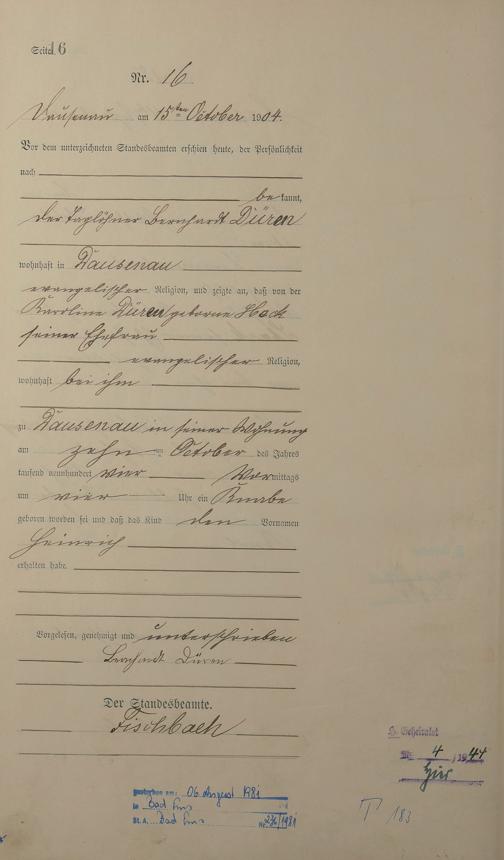 Seite 16
Nr. 16
Dausenau am 15ten October 1904.
Vor dem unterzeichneten Standesbeamten erschien heute, der Persönlichkeit
nach
bekannt,
der Taglöhner Bernhardt Düren
wohnhaft in Dausenau
evangelischer Religion, und zeigte an, daß von der
Karoline Düren geborne Hock
seiner Ehefrau
evangelischer Religion,
wohnhaft bei ihm
zu Dausenau in seiner Wohnung
am zehn October des Jahres
tausend neunhundert vier Vormittags
um vier Uhr ein Knabe
geboren worden sei und daß das Kind den Vornamen
Heinrich
erhalten habe.
Vorgelesen, genehmigt und unterschrieben
Bernhardt Düren
Der Standesbeamte.
Fischbach
Geheiratet
Nr. 4 / 1944
hier
gestorben am: 06. August 1981
in Bad Ems
St. A. Bad Ems Nr. 276/1981
T 183